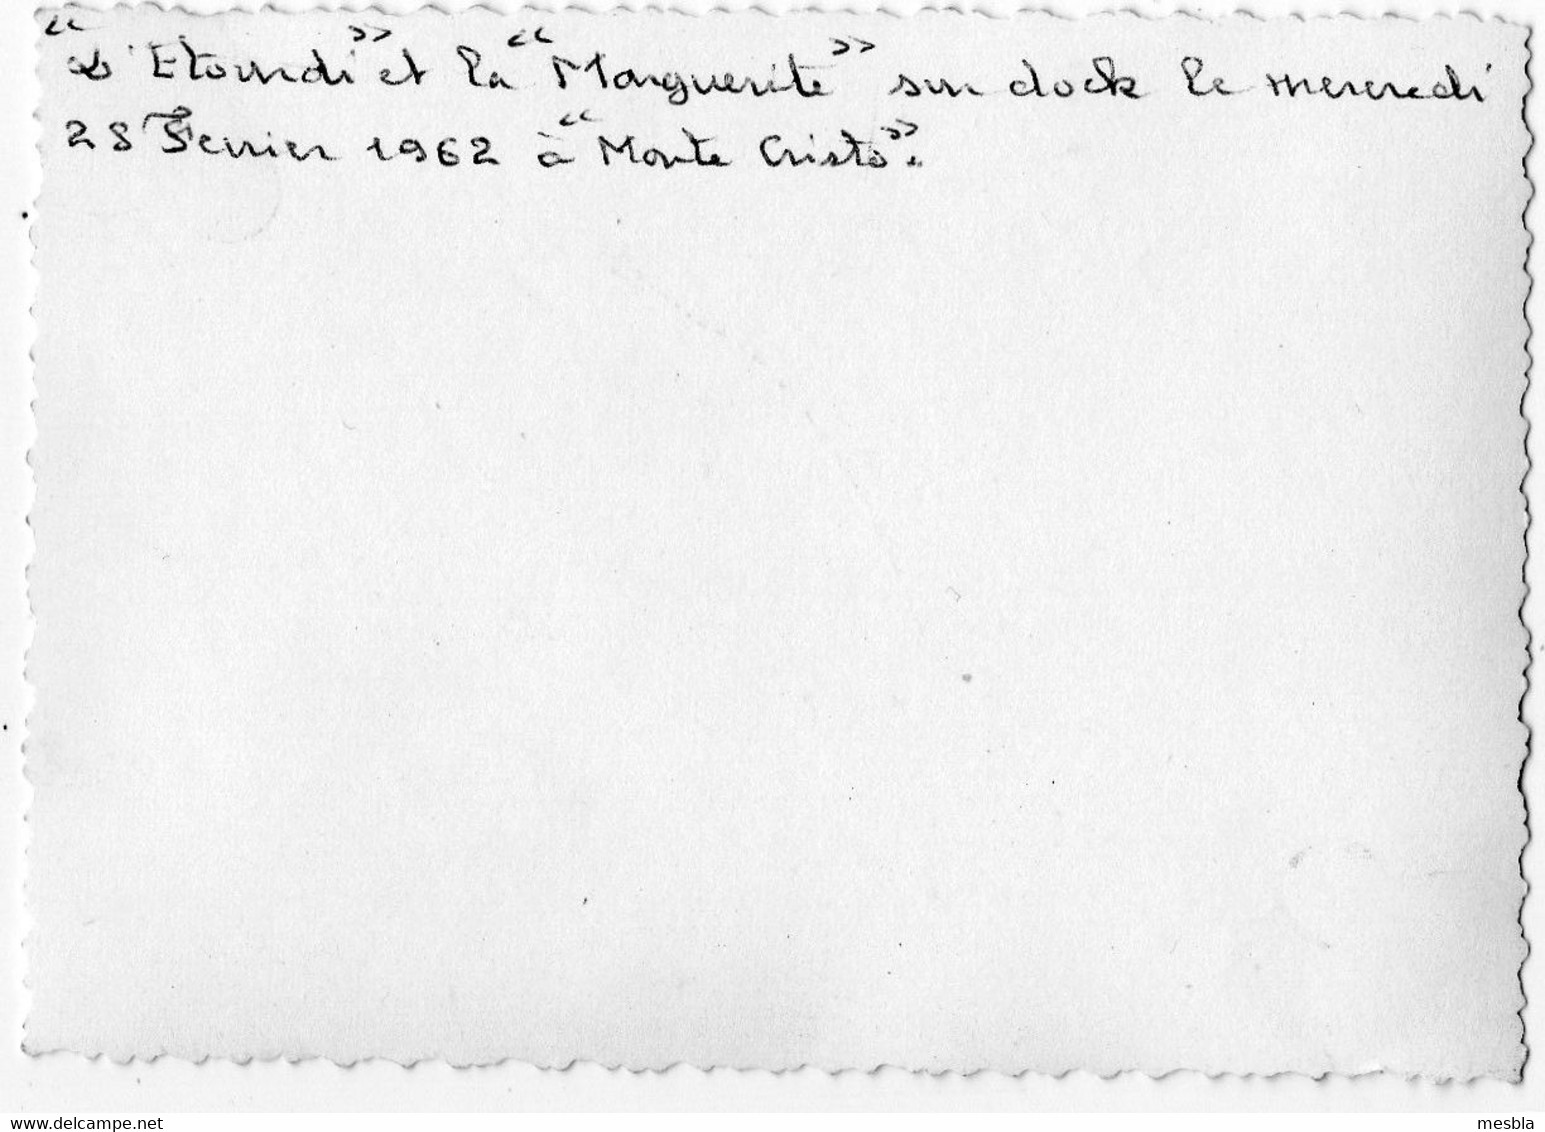 "L'Etourdi" et la "Marguerite" sur dock le mercredi
28 Fevrier 1962 à "Monte Cristo".
www.delcampe.net
mesbla